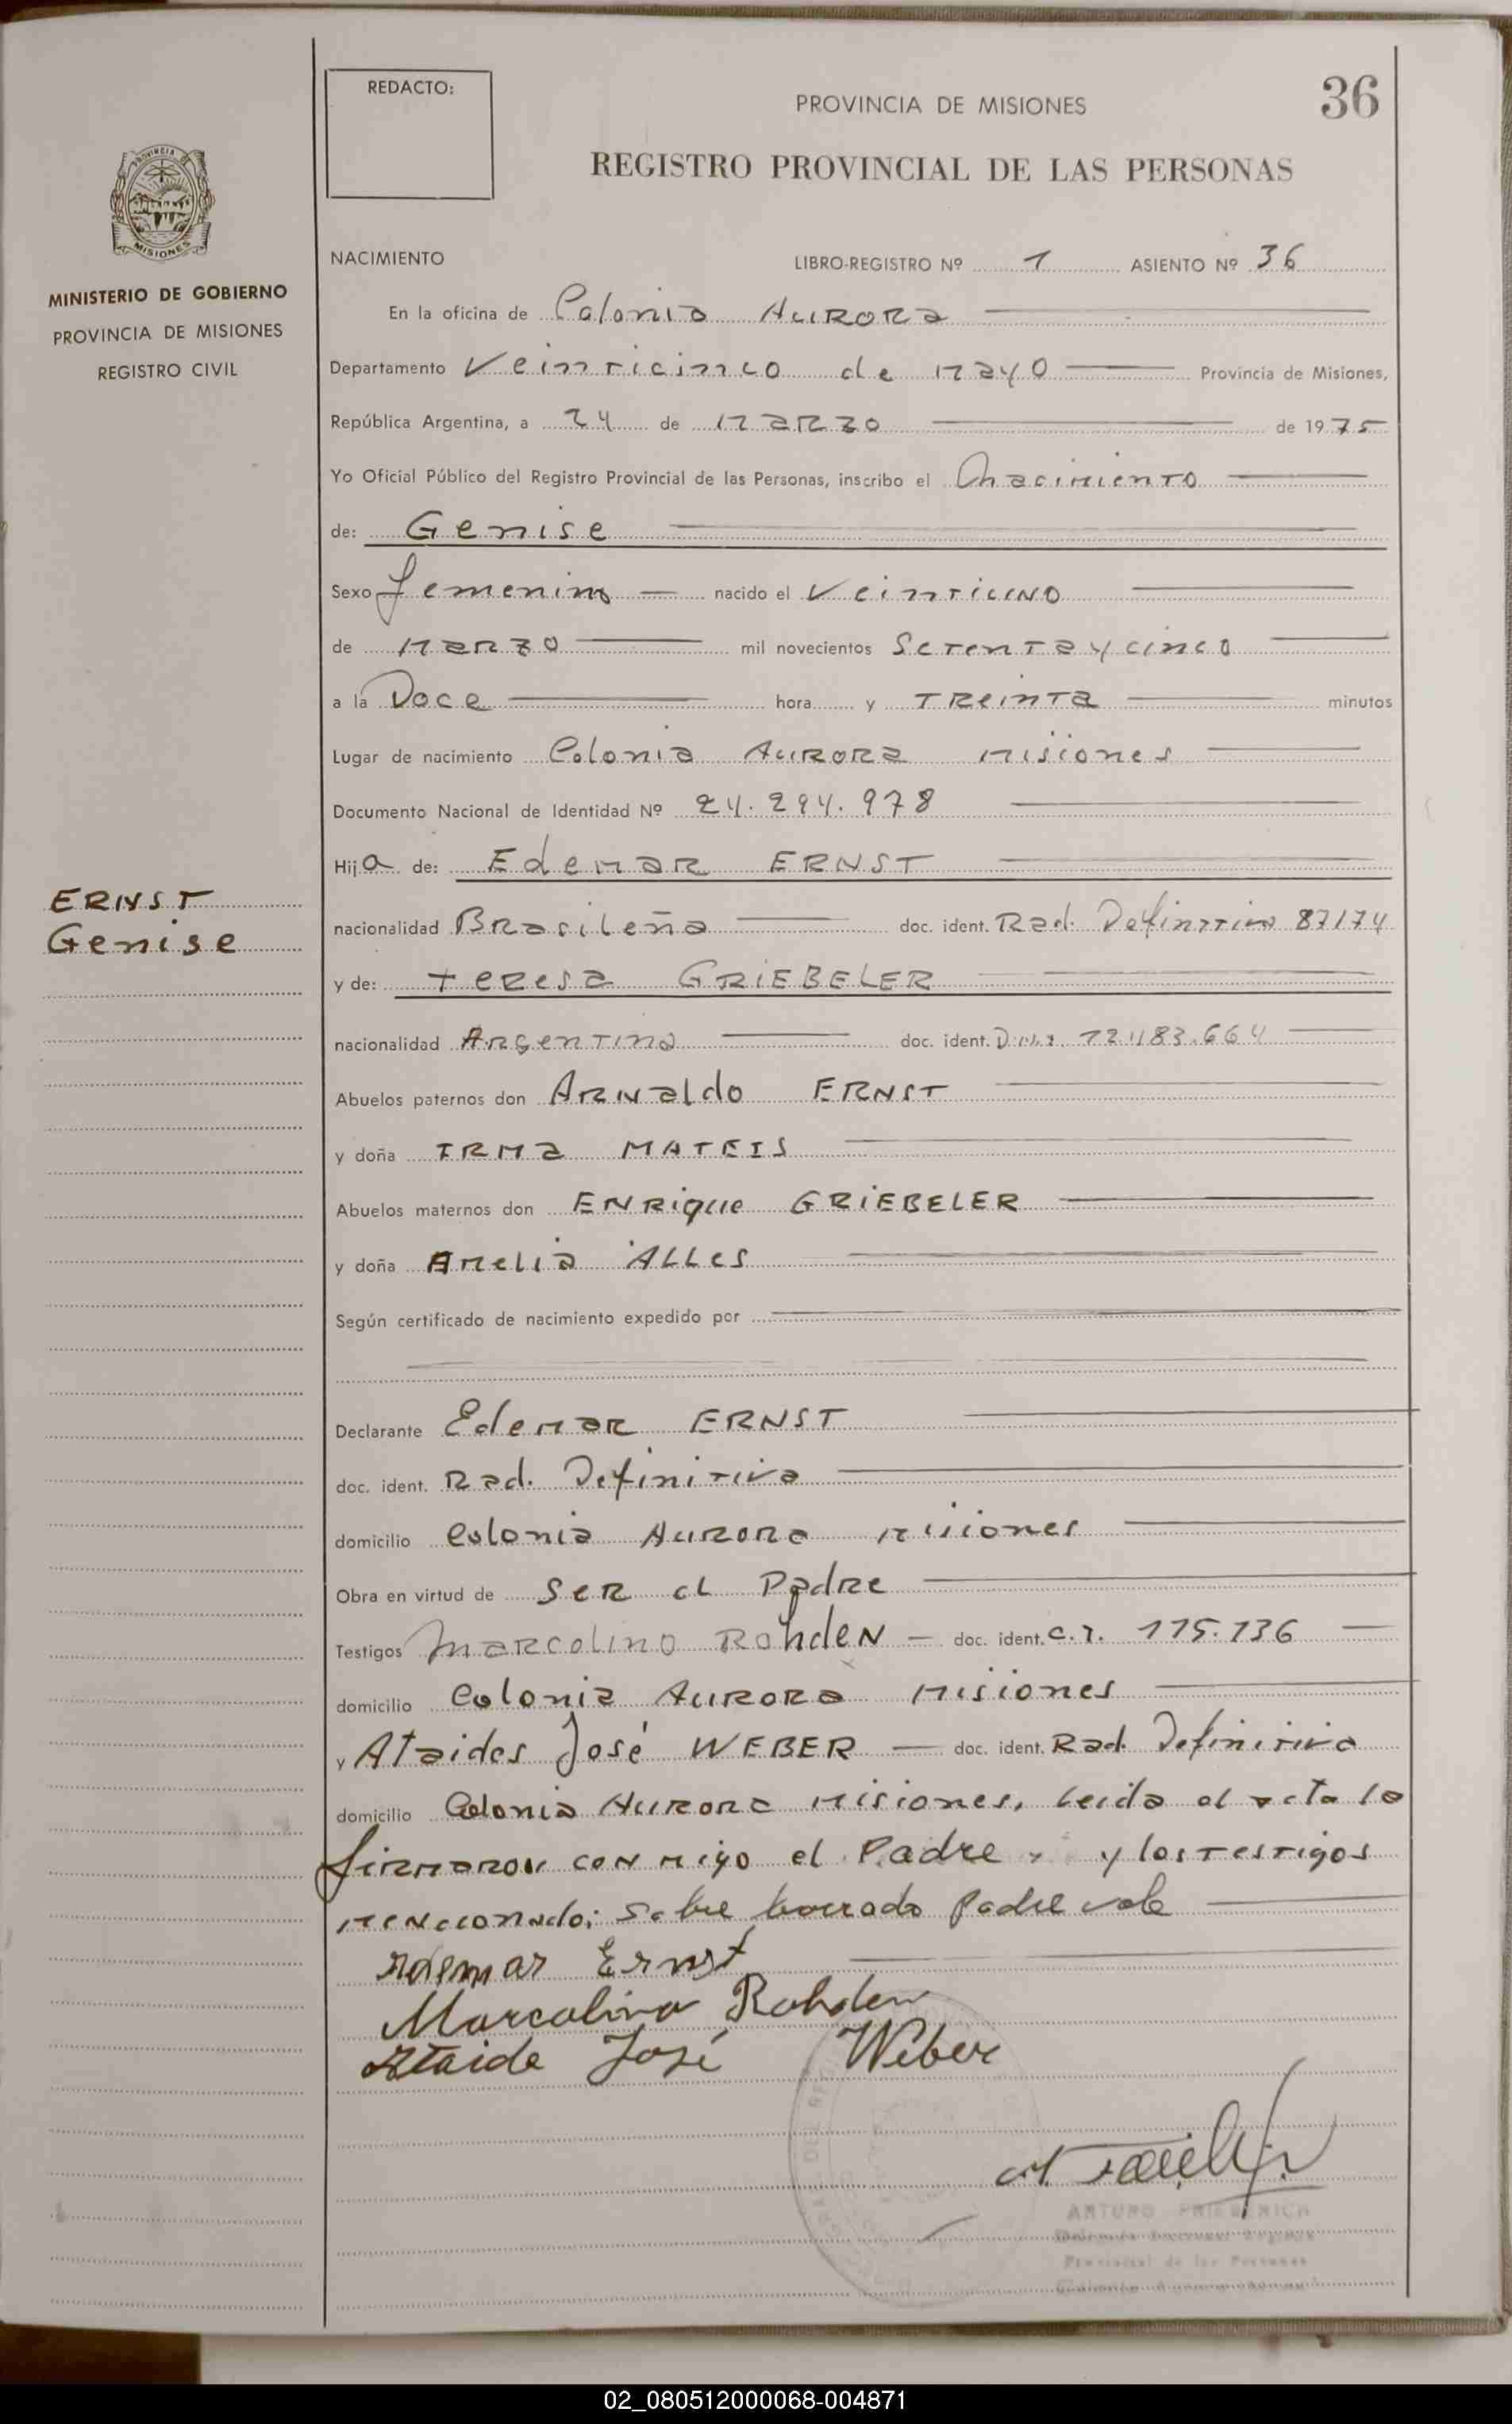 REDACTO:
36
PROVINCIA DE MISIONES
REGISTRO PROVINCIAL DE LAS PERSONAS
PROVINCIA DE
MISIONES
MINISTERIO DE GOBIERNO
PROVINCIA DE MISIONES
REGISTRO CIVIL
NACIMIENTO LIBRO-REGISTRO Nº 1 ASIENTO Nº 36
En la oficina de Colonia AURORA
Departamento Veinticinco de MAYO Provincia de Misiones,
República Argentina, a 24 de MARZO de 1975
Yo Oficial Público del Registro Provincial de las Personas, inscribo el nacimiento
de: Genise
Sexo femenino nacido el Veintiuno
de MARZO mil novecientos Setenta y cinco
a la Doce hora y TReinta minutos
Lugar de nacimiento Colonia AURORA Misiones
Documento Nacional de Identidad Nº 24.294.978
Hija de: Edemar ERNST
ERNST
Genise
nacionalidad BRasileña doc. ident. Rad. Definitiva 87174
y de: teresa GRIEBELER
nacionalidad ARgentina doc. ident. 12.183.664
Abuelos paternos don ARNaldo ERNST
y doña IRMa MATEIS
Abuelos maternos don ENRique GRIEBELER
y doña Amelia ALLES
Según certificado de nacimiento expedido por
Declarante Edemar ERNST
doc. ident. Rad. Definitiva
domicilio Colonia AURORA Misiones
Obra en virtud de SER el Padre
Testigos MARCOLINO RohdeN doc. ident. C.I. 115.136
domicilio Colonia AURORA Misiones
y Ataides José WEBER doc. ident. Rad. Definitiva
domicilio Colonia AURORA Misiones, leida el acta la
firmaron conmigo el Padre y los testigos
mencionado; Sobre borrado Padre vale
Edemar Ernst
Marcolino Rohden
Ataide José Weber
ARTURO FRIEDERICH
Provincial de las Personas
02_080512000068-004871